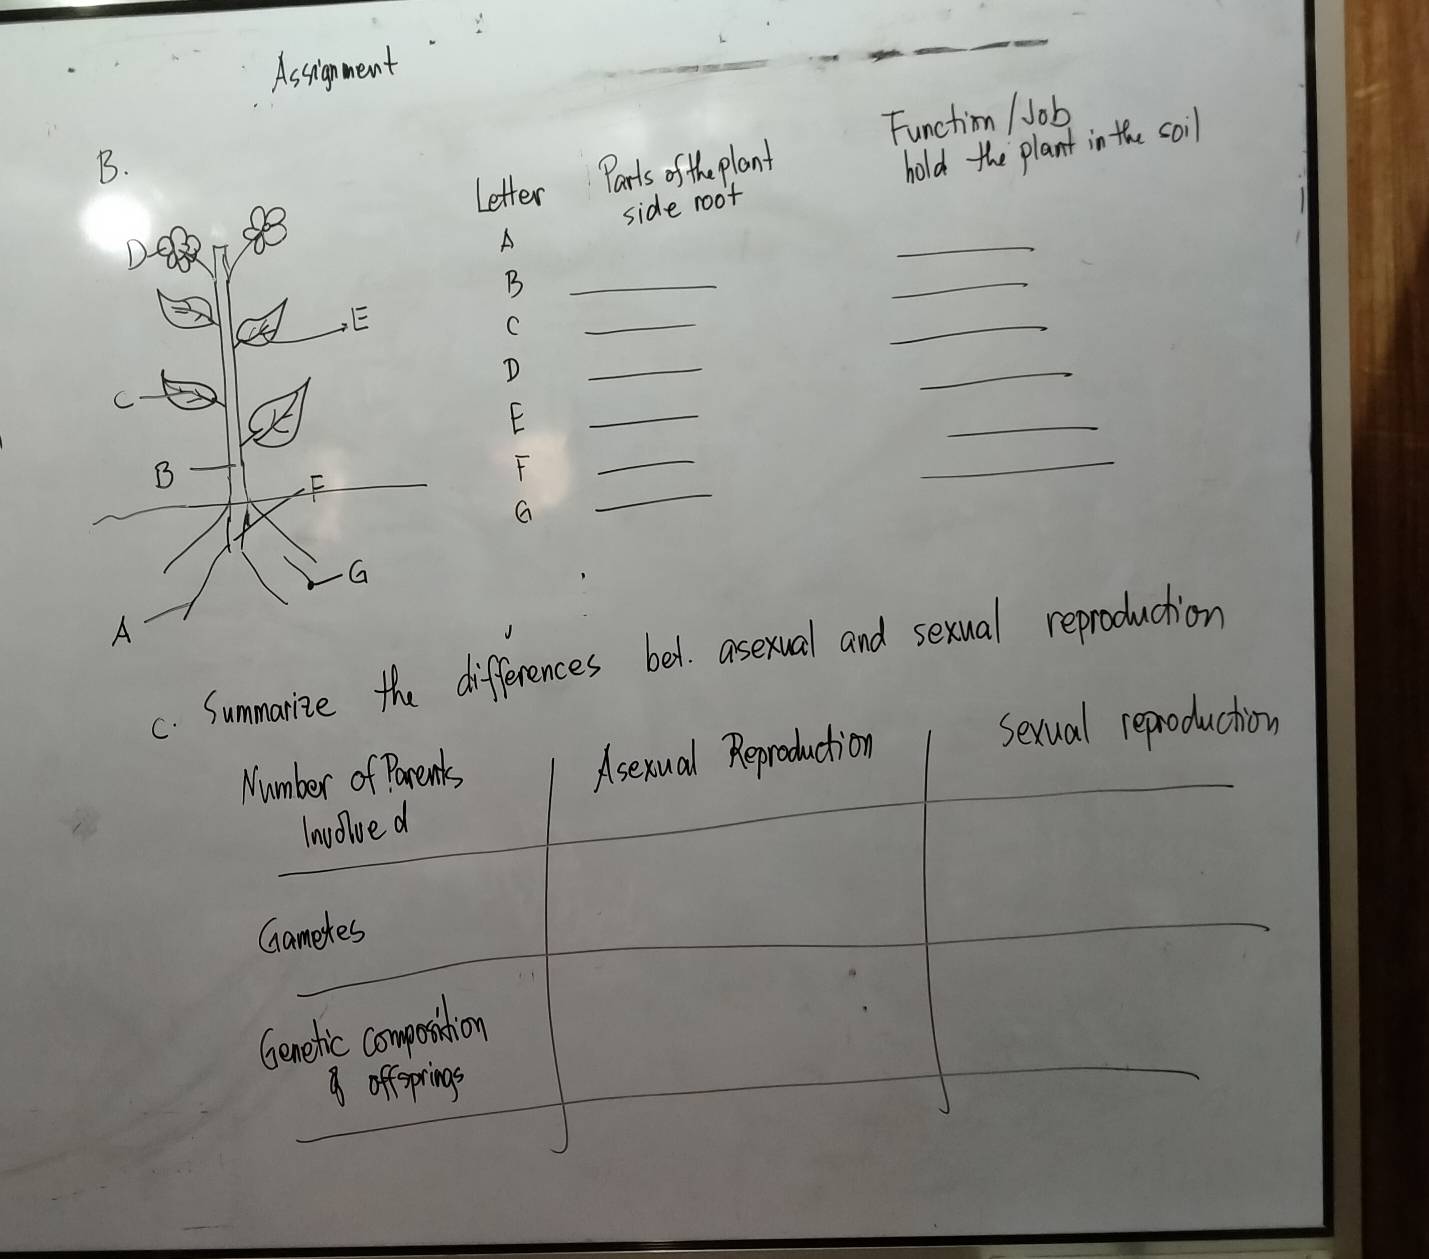 Assignment
B.
Letter Parts of the plant Function/Job
side root hold the plant in the soil
A
B
C
D
E
F
G
D
E
C
B
F
G
A
C. Summarize the differences bet. asexual and sexual reproduction
Number of Parents Asexual Reproduction Sexual reproduction
Involved
Gametes
Genetic composition
of offsprings